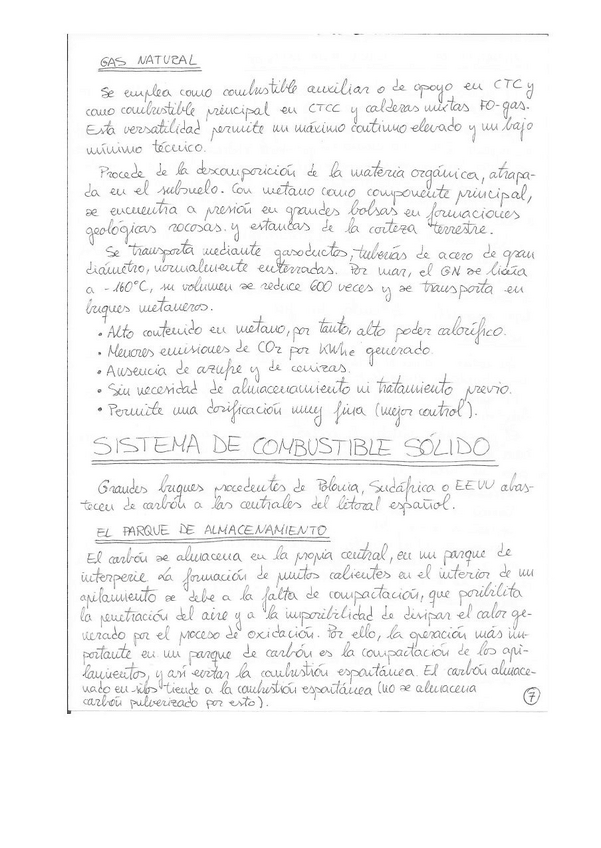 GAS NATURAL
Se emplea como combustible auxiliar o de apoyo en CTC y
como combustible principal en CTCC y calderas mixtas FO-gas.
Esta versatilidad permite un máximo continuo elevado y un bajo
mínimo técnico.
Procede de la descomposición de la materia orgánica, atrapa-
da en el subsuelo. Con metano como componente principal,
se encuentra a presión en grandes bolsas en formaciones
geológicas rocosas y estancas de la corteza terrestre.
Se transporta mediante gasoductos, tuberías de acero de gran
diámetro, normalmente enterradas. Por mar, el GN se licúa
a -160°C, su volumen se reduce 600 veces y se transporta en
buques metaneros.
• Alto contenido en metano, por tanto, alto poder calorífico.
• Menores emisiones de CO2 por KWhe generado.
• Ausencia de azufre y de cenizas.
• Sin necesidad de almacenamiento ni tratamiento previo.
• Permite una dosificación muy fina (mejor control).
SISTEMA DE COMBUSTIBLE SÓLIDO
Grandes buques procedentes de Polonia, Sudáfrica o EEUU abas-
tecen de carbón a las centrales del litoral español.
EL PARQUE DE ALMACENAMIENTO
El carbón se almacena en la propia central, en un parque de
interperie. La formación de puntos calientes en el interior de un
apilamiento se debe a la falta de compactación, que posibilita
la penetración del aire y a la imposibilidad de disipar el calor ge-
nerado por el proceso de oxidación. Por ello, la operación más im-
portante en un parque de carbón es la compactación de los api-
lamientos, y así evitar la combustión espontánea. El carbón almace-
nado en silos tiende a la combustión espontánea (no se almacena
carbón pulverizado por esto).
7